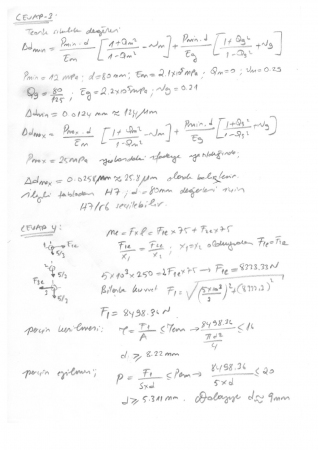 CEVAP-3:
Teorik sıkılık değerleri
Δdmin = Pmin·d / Em [ 1+Qm² / 1−Qm² − νm ] + Pmin·d / Eg [ 1+Qg² / 1−Qg² + νg ]
Pmin = 12 MPa; d=80mm; Em=2.1x10⁵ MPa; Qm=0; νm=0.29
Qg = 80/125; Eg=2.2x10⁵ MPa; νg=0.21
Δdmin = 0.0124 mm ≈ 12.4 µm
Δdmax = Pmax·d / Em [ 1+Qm² / 1−Qm² − νm ] + Pmax·d / Eg [ 1+Qg² / 1−Qg² + νg ]
Pmax = 25 MPa yukarıdaki
Δdmax = 0.0258 mm ≈ 25.8 µm olarak bulunur
ilgili tablodan H7; d=80mm değerleri için
H7/r6 seçilebilir.
CEVAP 4:
Mc = F×R = F1e×75 + F2e×75
F1e / x1 = F2e / x2; x1=x2 olduğundan F1e=F2e
5×10³×250 = 2F1e×75 → F1e = 8333.33N
Bileşke kuvvet F1 = √((5×10³/3)² + (8333.3)²)
F1 = 8498.36 N
pimin kesilmesi: τ = F1/A ≤ τem → 8498.36 / (πd²/4) ≤ 16
d ≥ 8.22 mm
pimin ezilmesi; P = F1 / 5×d ≤ Pem → 8498.36 / 5×d ≤ 20
d ≥ 5.311 mm. Dolayısıyla d ≈ 9mm